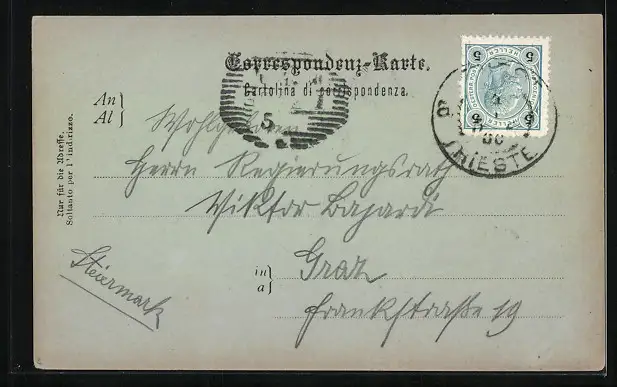 Correspondenz-Karte.
Cartolina di corrispondenza.
An
Al
Wohlgeboren
Herrn Regierungsrath
Viktor Bajardi
in
a
Graz
Frankstraße 19
Steiermark
Nur für die Adresse.
Soltanto per l'indirizzo.
5 HELLER 5
5 5
TRIESTE
5